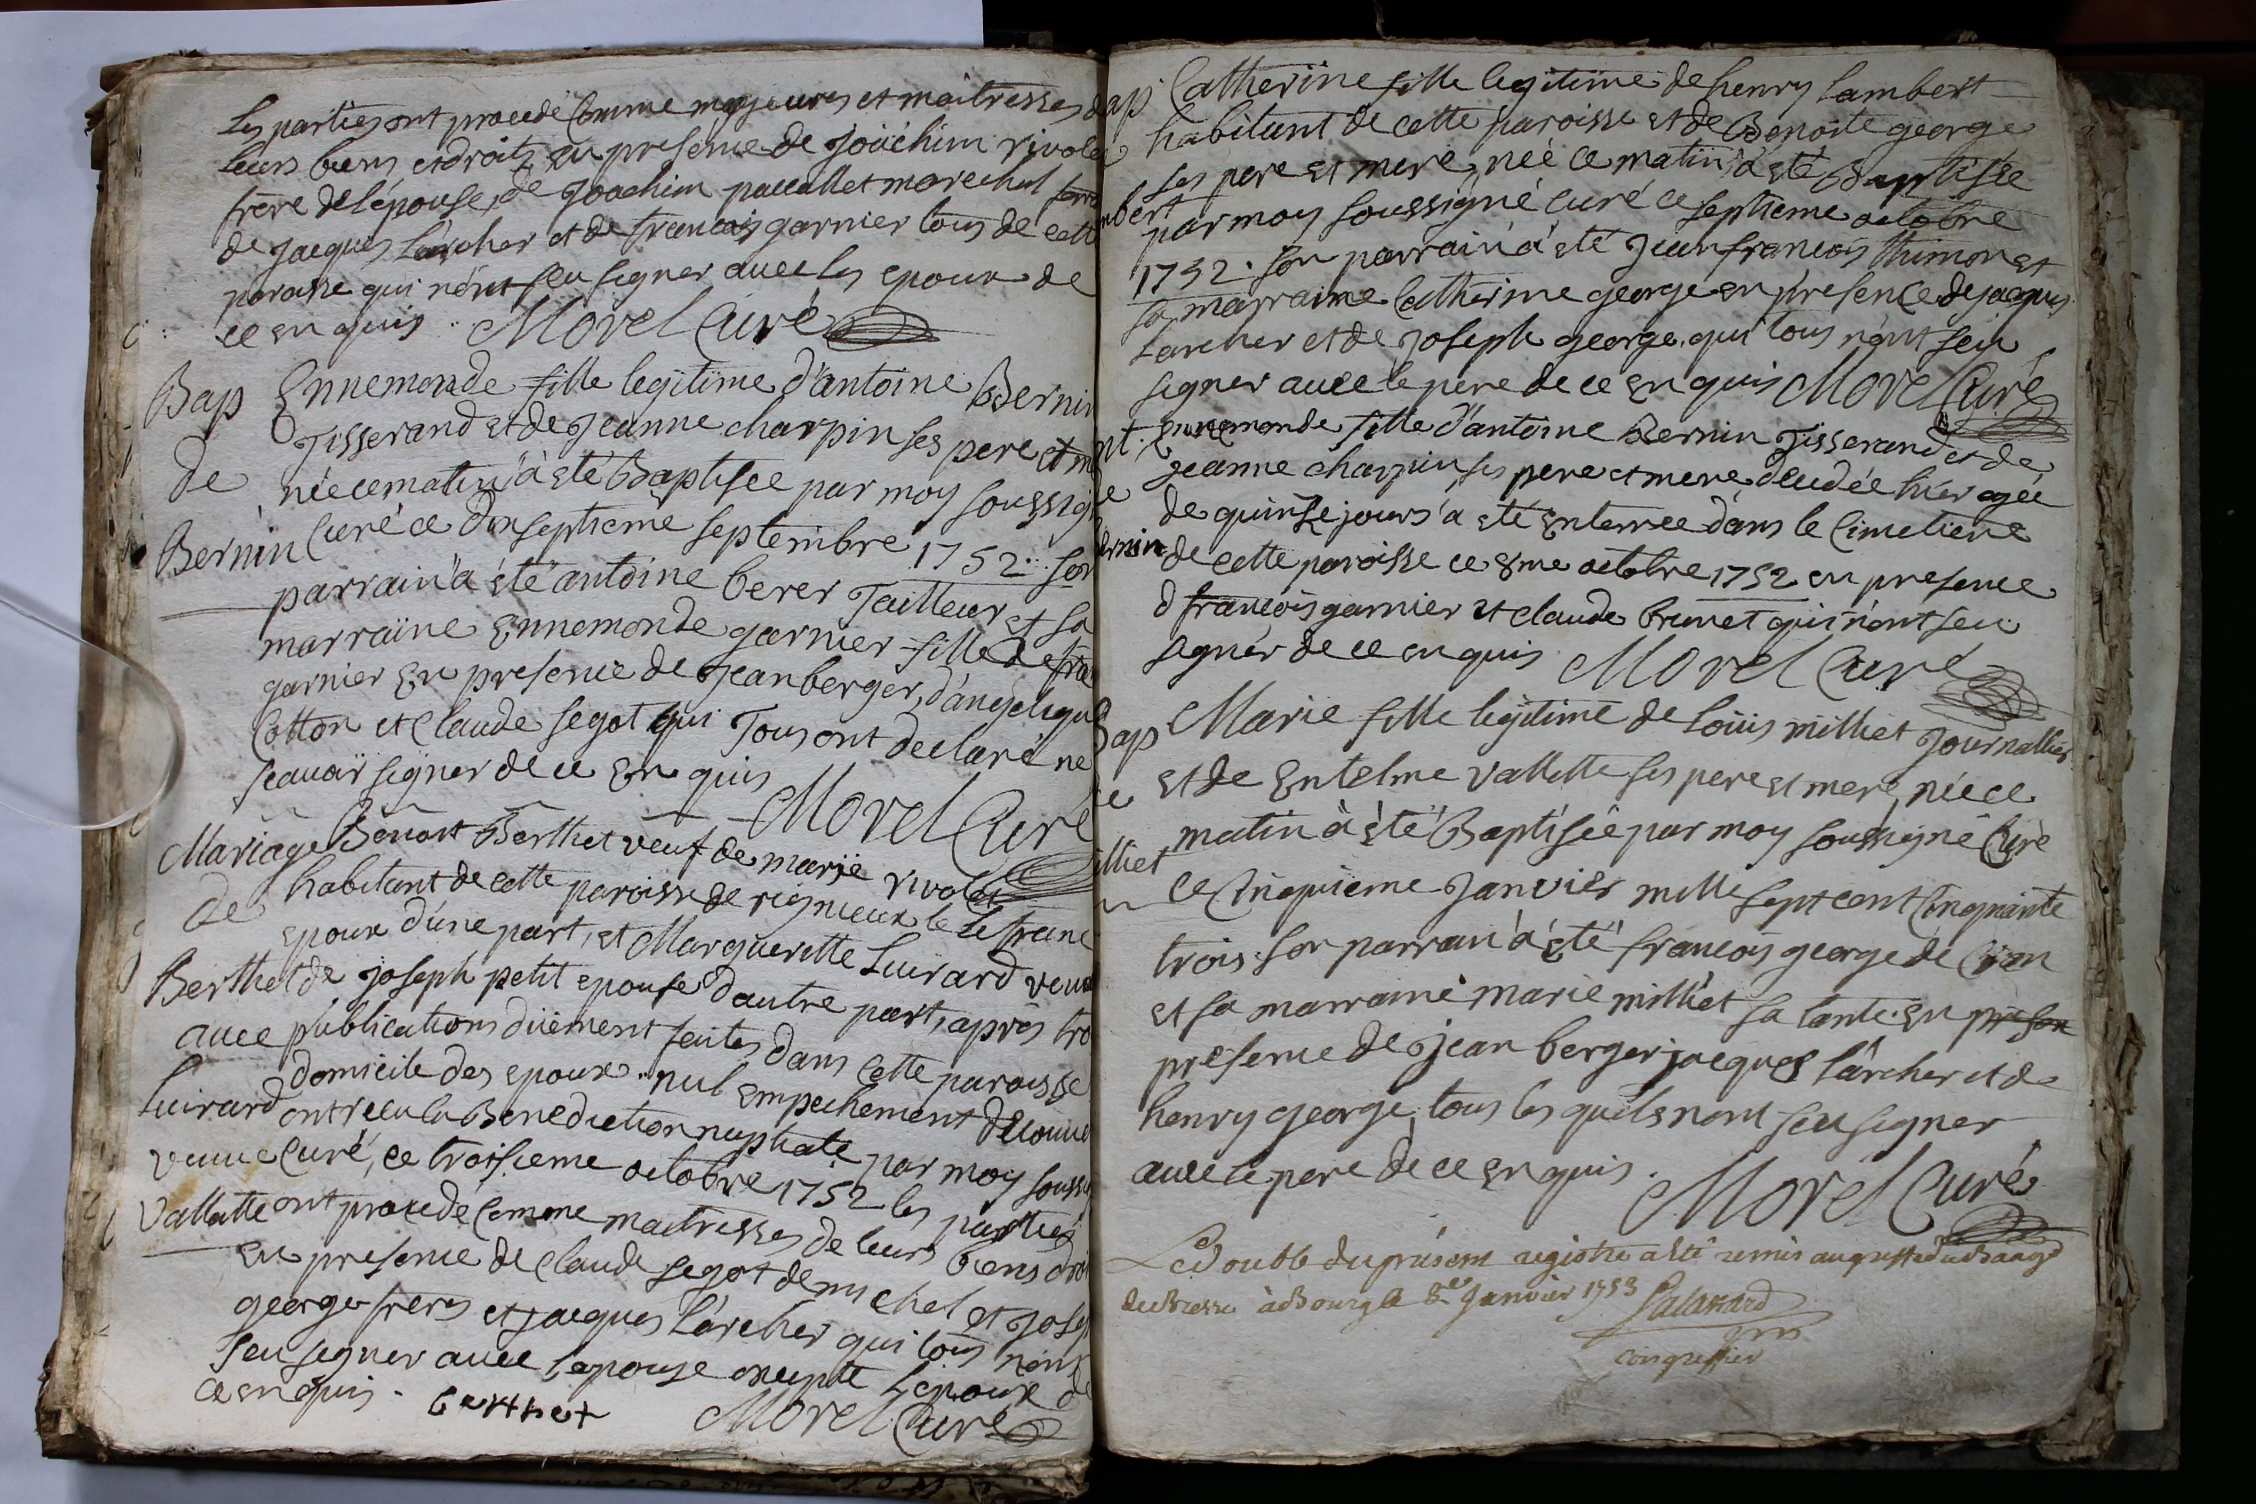 les parties ont procedé Comme majeures et maitresses de
leurs biens et droits en presence de Joachim rivolet
frere de l'épouse, de Joachim paccallet marechal
de jacques Larcher et de francois garnier tous de cette
paroisse qui n'ont seu signer avec les epoux de
ce enquis. Morel Curé
Bap Ennemonde fille legitime d'antoine Bernin
Tisserand et de Jeanne charpin ses pere et m
de née ce matin à eté Baptisée par moy soussigné
Bernin Curé ce dix septieme septembre 1752. son
parrain a été antoine berer Tailleur et sa
marraine Ennemonde garnier fille de fran
garnier En presence de Jean berger, d'angelique
Cotton et Claude segot qui Tous ont declaré ne
scavoir signer de ce En quis
Morel Curé
Mariage Benoit Berthet veuf de marie rivolet
de habitant de cette paroisse de rignieux le franc
epoux d'une part, et Marguerite Luirard veuve
Berthet de joseph petit epouse d'autre part, apres tro
avec publications düement faites dans cette paroisse
domicile des epoux. nul empechement decouve
Luirard ont recu la Benediction nuptiale par moy souss
veuve Curé, ce troisieme octobre 1752 les parties
Vallette ont procedé Comme maitresses de leurs biens droi
en presence de Claude segot de michel et Josep
george freres et jacques Larcher qui tous n'ont
seu signer avec l'epouse excepté l'epoux de
ce en quis. berthet Morel Curé
Bap Catherine fille legitime de henry Lambert
habitant de cette paroisse et de Benoite george
ses pere et mere, née ce matin à eté Baptisée
mbert par moy soussigné Curé ce septieme octobre
1752. son parrain à eté Jean francois Thimon et
sa marraine Catherine george en presence de jacques
Larcher et de joseph george, qui tous n'ont seu
signer avec le pere de ce en quis Morel Curé
nt. Ennemonde fille d'antoine Bernin Tisserand et de
jeanne charpin ses pere et mere decedée hier agée
de quinse jours a eté Enterree dans le Cimetiere
ernin de cette paroisse ce 8me octobre 1752 en presence
d francois garnier et claude brunet qui n'ont seu
signer de ce en quis Morel Curé
Bap Marie fille legitime de Loüis milliet Journallier
et de Entelme Vallette ses pere et mere, née ce
matin à été Baptisée par moy soussigné Curé
illiet ce Cinquieme Janvier mille sept cent Cinquante
trois. son parrain à eté francois george de Cran
et sa marraine marie milliet sa tante. en preson
presence de Jean berger jacques Larcher et de
henry george tous les quels n'ont seu signer
avec le pere de ce en quis.
Morel Curé
Le Double du présent registre a été remis au greffe du Baage
de Bresse à Bourg le 8e Janvier 1753